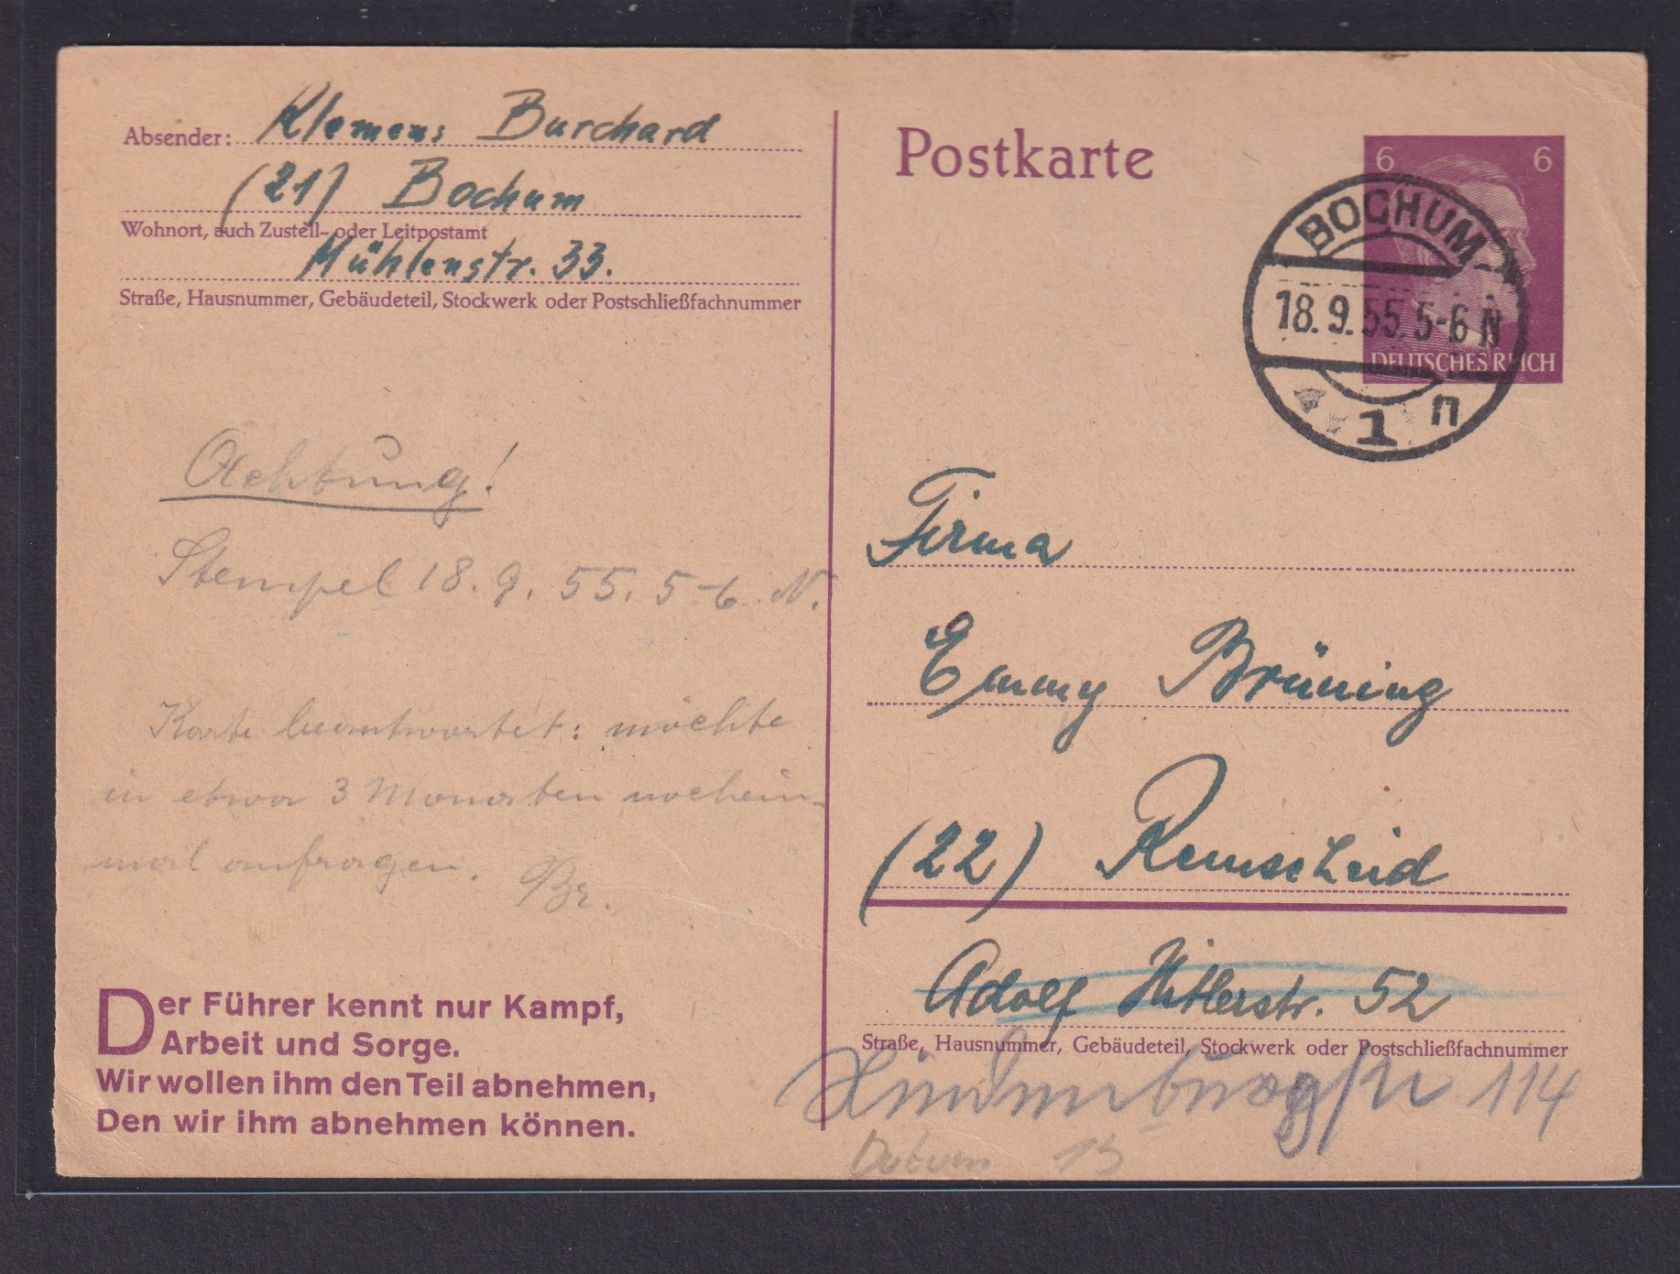 Absender: Klemens Burchard
(21) Bochum
Wohnort, auch Zustell- oder Leitpostamt
Mühlenstr. 33.
Straße, Hausnummer, Gebäudeteil, Stockwerk oder Postschließfachnummer
Postkarte
6 6
DEUTSCHES REICH
BOCHUM
18.9.55.5-6 N
1 n
Achtung!
Stempel 18.9.55.5-6 N.
Karte beantwortet: möchte
in etwa 3 Monaten nochein-
mal anfragen. Br.
Der Führer kennt nur Kampf,
Arbeit und Sorge.
Wir wollen ihm den Teil abnehmen,
Den wir ihm abnehmen können.
Firma
Emmy Brüning
(22) Remscheid
Adolf Hitlerstr. 52
Straße, Hausnummer, Gebäudeteil, Stockwerk oder Postschließfachnummer
Hindenburgstr 114
Datum